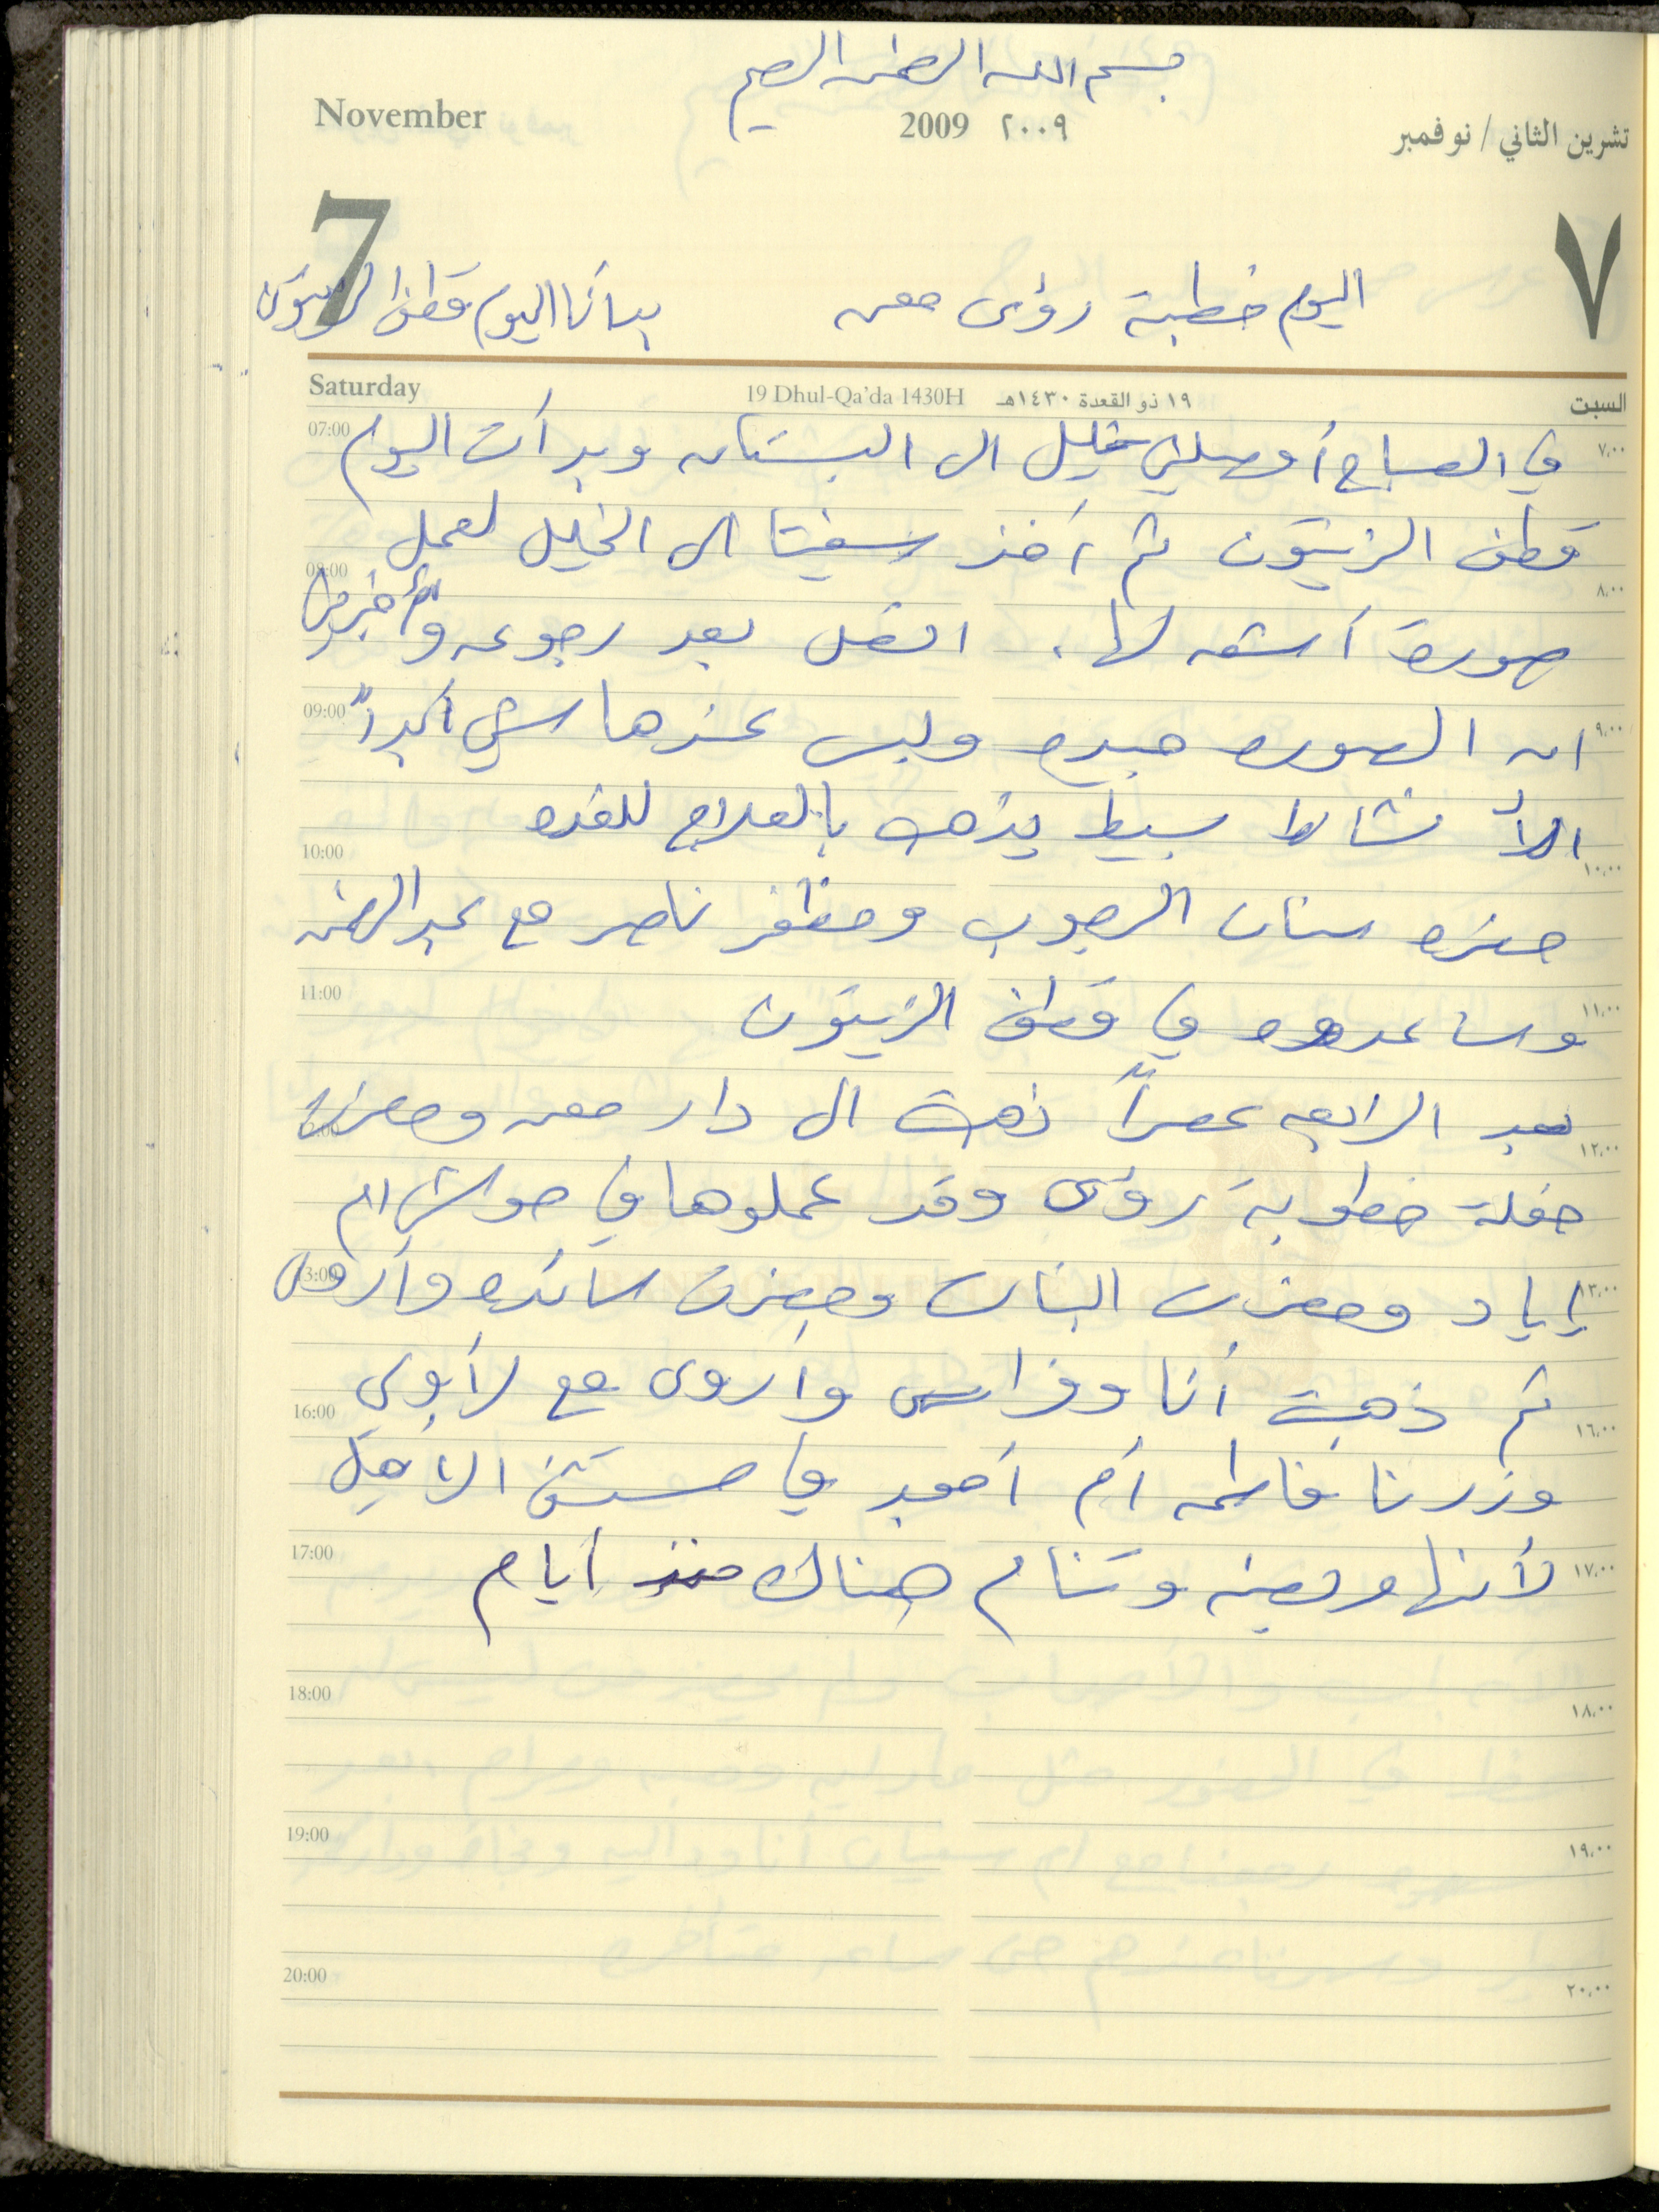 بسم الله الرحمن الرحيم
November
2009 ٢٠٠٩
تشرين الثاني / نوفمبر
7
٧
اليوم خطبة رؤى معن
بدأنا اليوم قطف الزيتون
Saturday
19 Dhul-Qa'da 1430H ١٩ ذو القعدة ١٤٣٠هـ
السبت
07:00 ٧،٠٠
في الصباح أوصلني خليل الى البستان وبدأت اليوم
قطف الزيتون ثم أخذ الى الخليل لعمل
08:00 ٨،٠٠
صورة أشعه لها. اتصل بعد رجوعه وأخبرني
09:00 ٩،٠٠
ان الصوره جيده وليس عندها شيء أبداً
الا نشاط بسيط يذهب بالعلاج للغده
10:00 ١٠،٠٠
حضره سنان الرجوب ومظفر ناصر مع عبد الرحمن
11:00 ١١،٠٠
وساعدوه في قطف الزيتون
بعد الرابعه عصراً ذهبت الى دار معن وحضرت
12:00 ١٢،٠٠
حفلة خطوبة رؤى وقد عملوها في حوش ام
13:00 ١٣،٠٠
إياد وحضرت البنات وحضرت سائده وأروى
ثم ذهبت أنا وفراس وأروى مع
16:00 ١٦،٠٠
وزرنا فاطمه أم أمجد في مستشفى الأهلي
17:00 ١٧،٠٠
لأنها مريضه وتنام هناك منذ أيام
18:00 ١٨،٠٠
19:00 ١٩،٠٠
20:00 ٢٠،٠٠